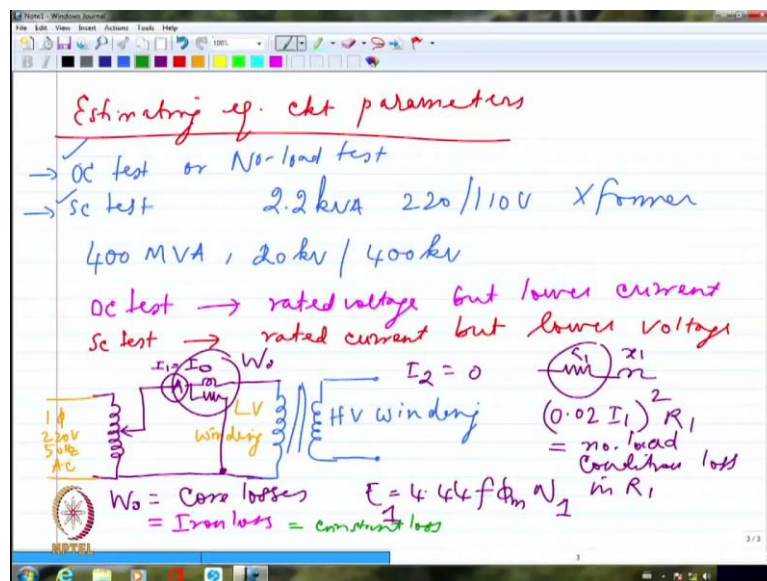 Note1 - Windows Journal
File Edit View Insert Actions Tools Help
100%
B I
Estimating eq. ckt parameters
→ OC test or No-load test
→ SC test 2.2 kVA 220/110V Xformer
400 MVA, 20kV / 400kV
OC test → rated voltage but lower current
SC test → rated current but lower voltage
I1=I0 W0 I2 = 0 r1 x1
A
1φ
220V
50Hz
AC
LV
winding
HV winding
(0.02 I1)² R1
= no.load
Condition loss
in R1
W0 = Core losses E1 = 4.44 f φm N1
= Iron loss = constant loss
NPTEL
3/3
3